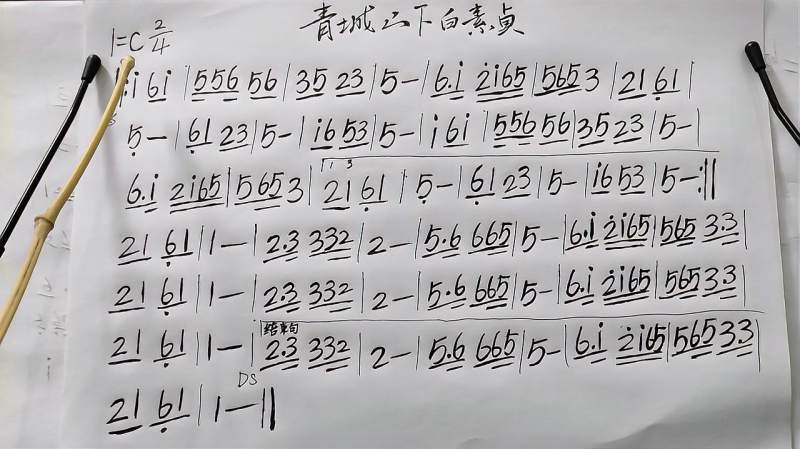 青城山下白素贞
1=C 2/4
‖:i 6i |556 56|35 23|5-|6.i 2i65|5653|21 61|
5-|61 23|5-|i6 53|5-|i 6i|556 56|35 23|5-|
6.i 2i65|565 3|21 61|5-|61 23|5-|i6 53|5-:‖
1 3
21 61|1-|2.3 332|2-|5.6 665|5-|6.i 2i65|565 3.3|
21 61|1-|2.3 332|2-|5.6 665|5-|6.i 2i65|565 3.3|
结束句
21 61|1-|2.3 332|2-|5.6 665|5-|6.i 2i65|565 3.3|
DS
21 61|1-‖